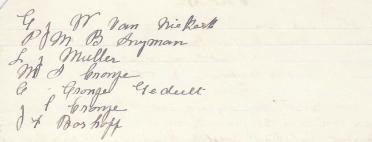 G J W Van Niekerk
P J M B Snyman
L J Muller
M S Cronje
C Cronje Geduld
J S Cronje
J H Boshoff